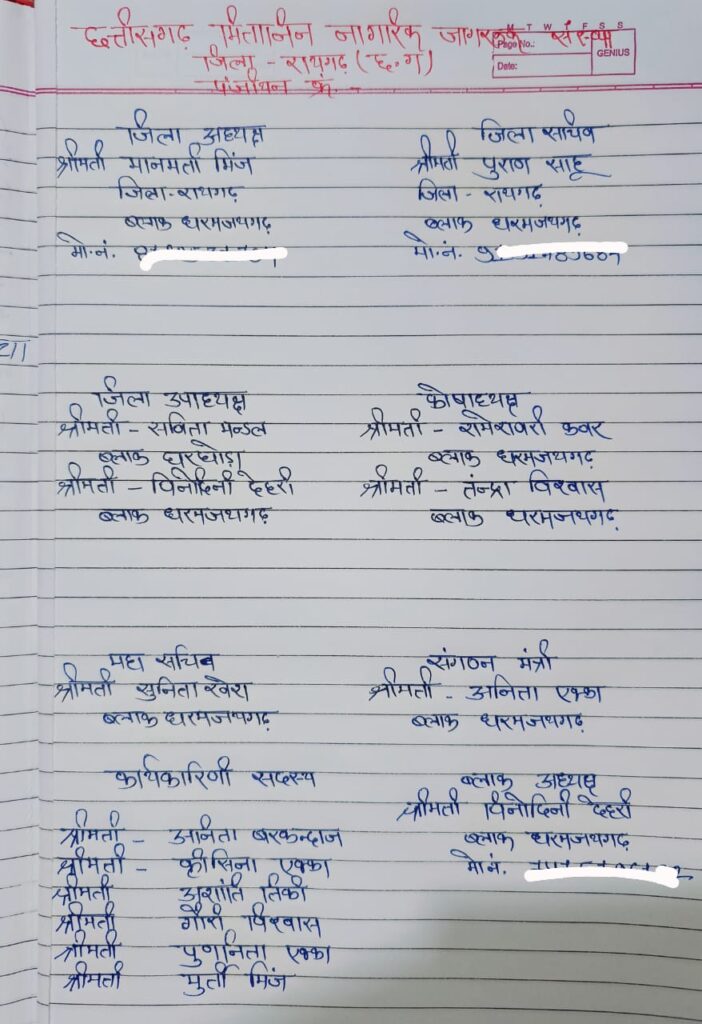 छत्तीसगढ़ मितानिन नागरिक जागरूक संस्था
जिला - रायगढ़ (छ.ग)
पंजीयन क्रं. -
M T W F S S
Page No.:
Date:
GENIUS
जिला अध्यक्ष
श्रीमती मानमती मिंज
जिला - रायगढ़
ब्लाक धरमजयगढ़
मो.नं.
जिला सचिव
श्रीमती पुराण साहू
जिला - रायगढ़
ब्लाक धरमजयगढ़
मो.नं.
जिला उपाध्यक्ष
श्रीमती - सविता मण्डल
ब्लाक घरघोड़ा
श्रीमती - विनोदिनी देहरी
ब्लाक धरमजयगढ़
कोषाध्यक्ष
श्रीमती - रामेशवरी कवर
ब्लाक धरमजयगढ़
श्रीमती - तंन्द्रा विश्वास
ब्लाक धरमजयगढ़
महा सचिव
श्रीमती सुनिता खेस
ब्लाक धरमजयगढ़
संगठन मंत्री
श्रीमती - अनिता एक्का
ब्लाक धरमजयगढ़
कार्यकारिणी सदस्य
श्रीमती - अनिता बरकन्दाज
श्रीमती - क्रीसिना एक्का
श्रीमती अशांति तिर्की
श्रीमती गौरी विश्वास
श्रीमती पुर्णानिता एक्का
श्रीमती मुर्ती मिंज
ब्लाक अध्यक्ष
श्रीमती विनोदिनी देहरी
ब्लाक धरमजयगढ़
मो.नं.